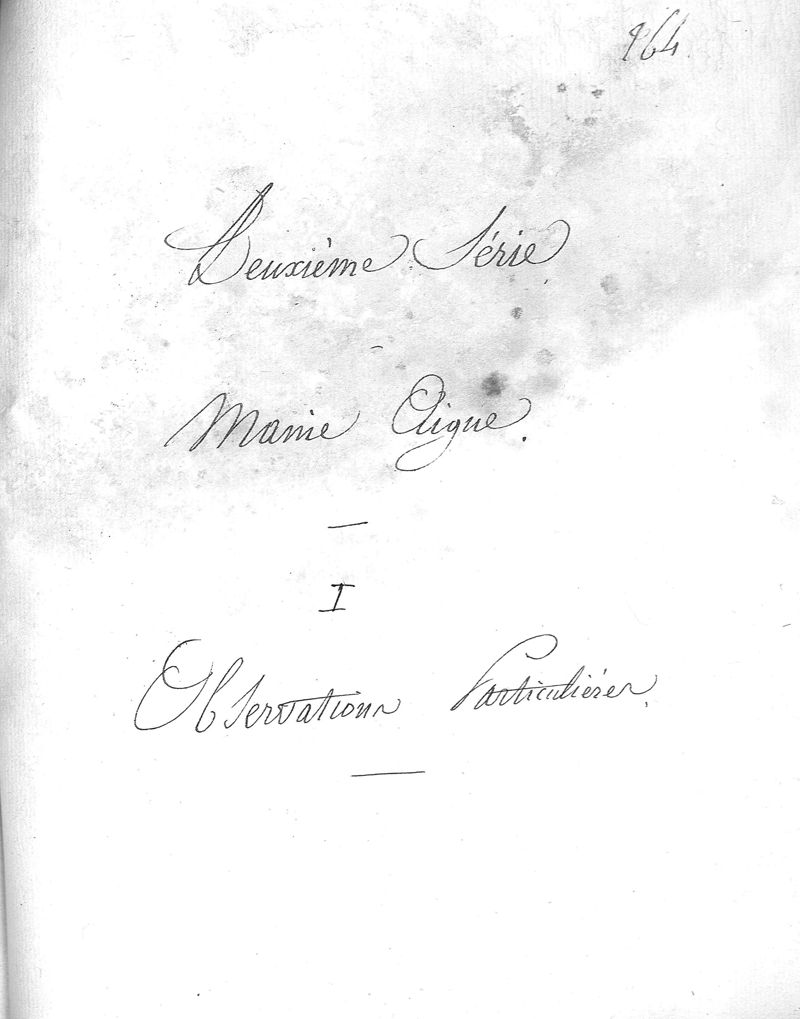 164.
Deuxième Série.
Manie Aigue.
I
Observations Particulières.